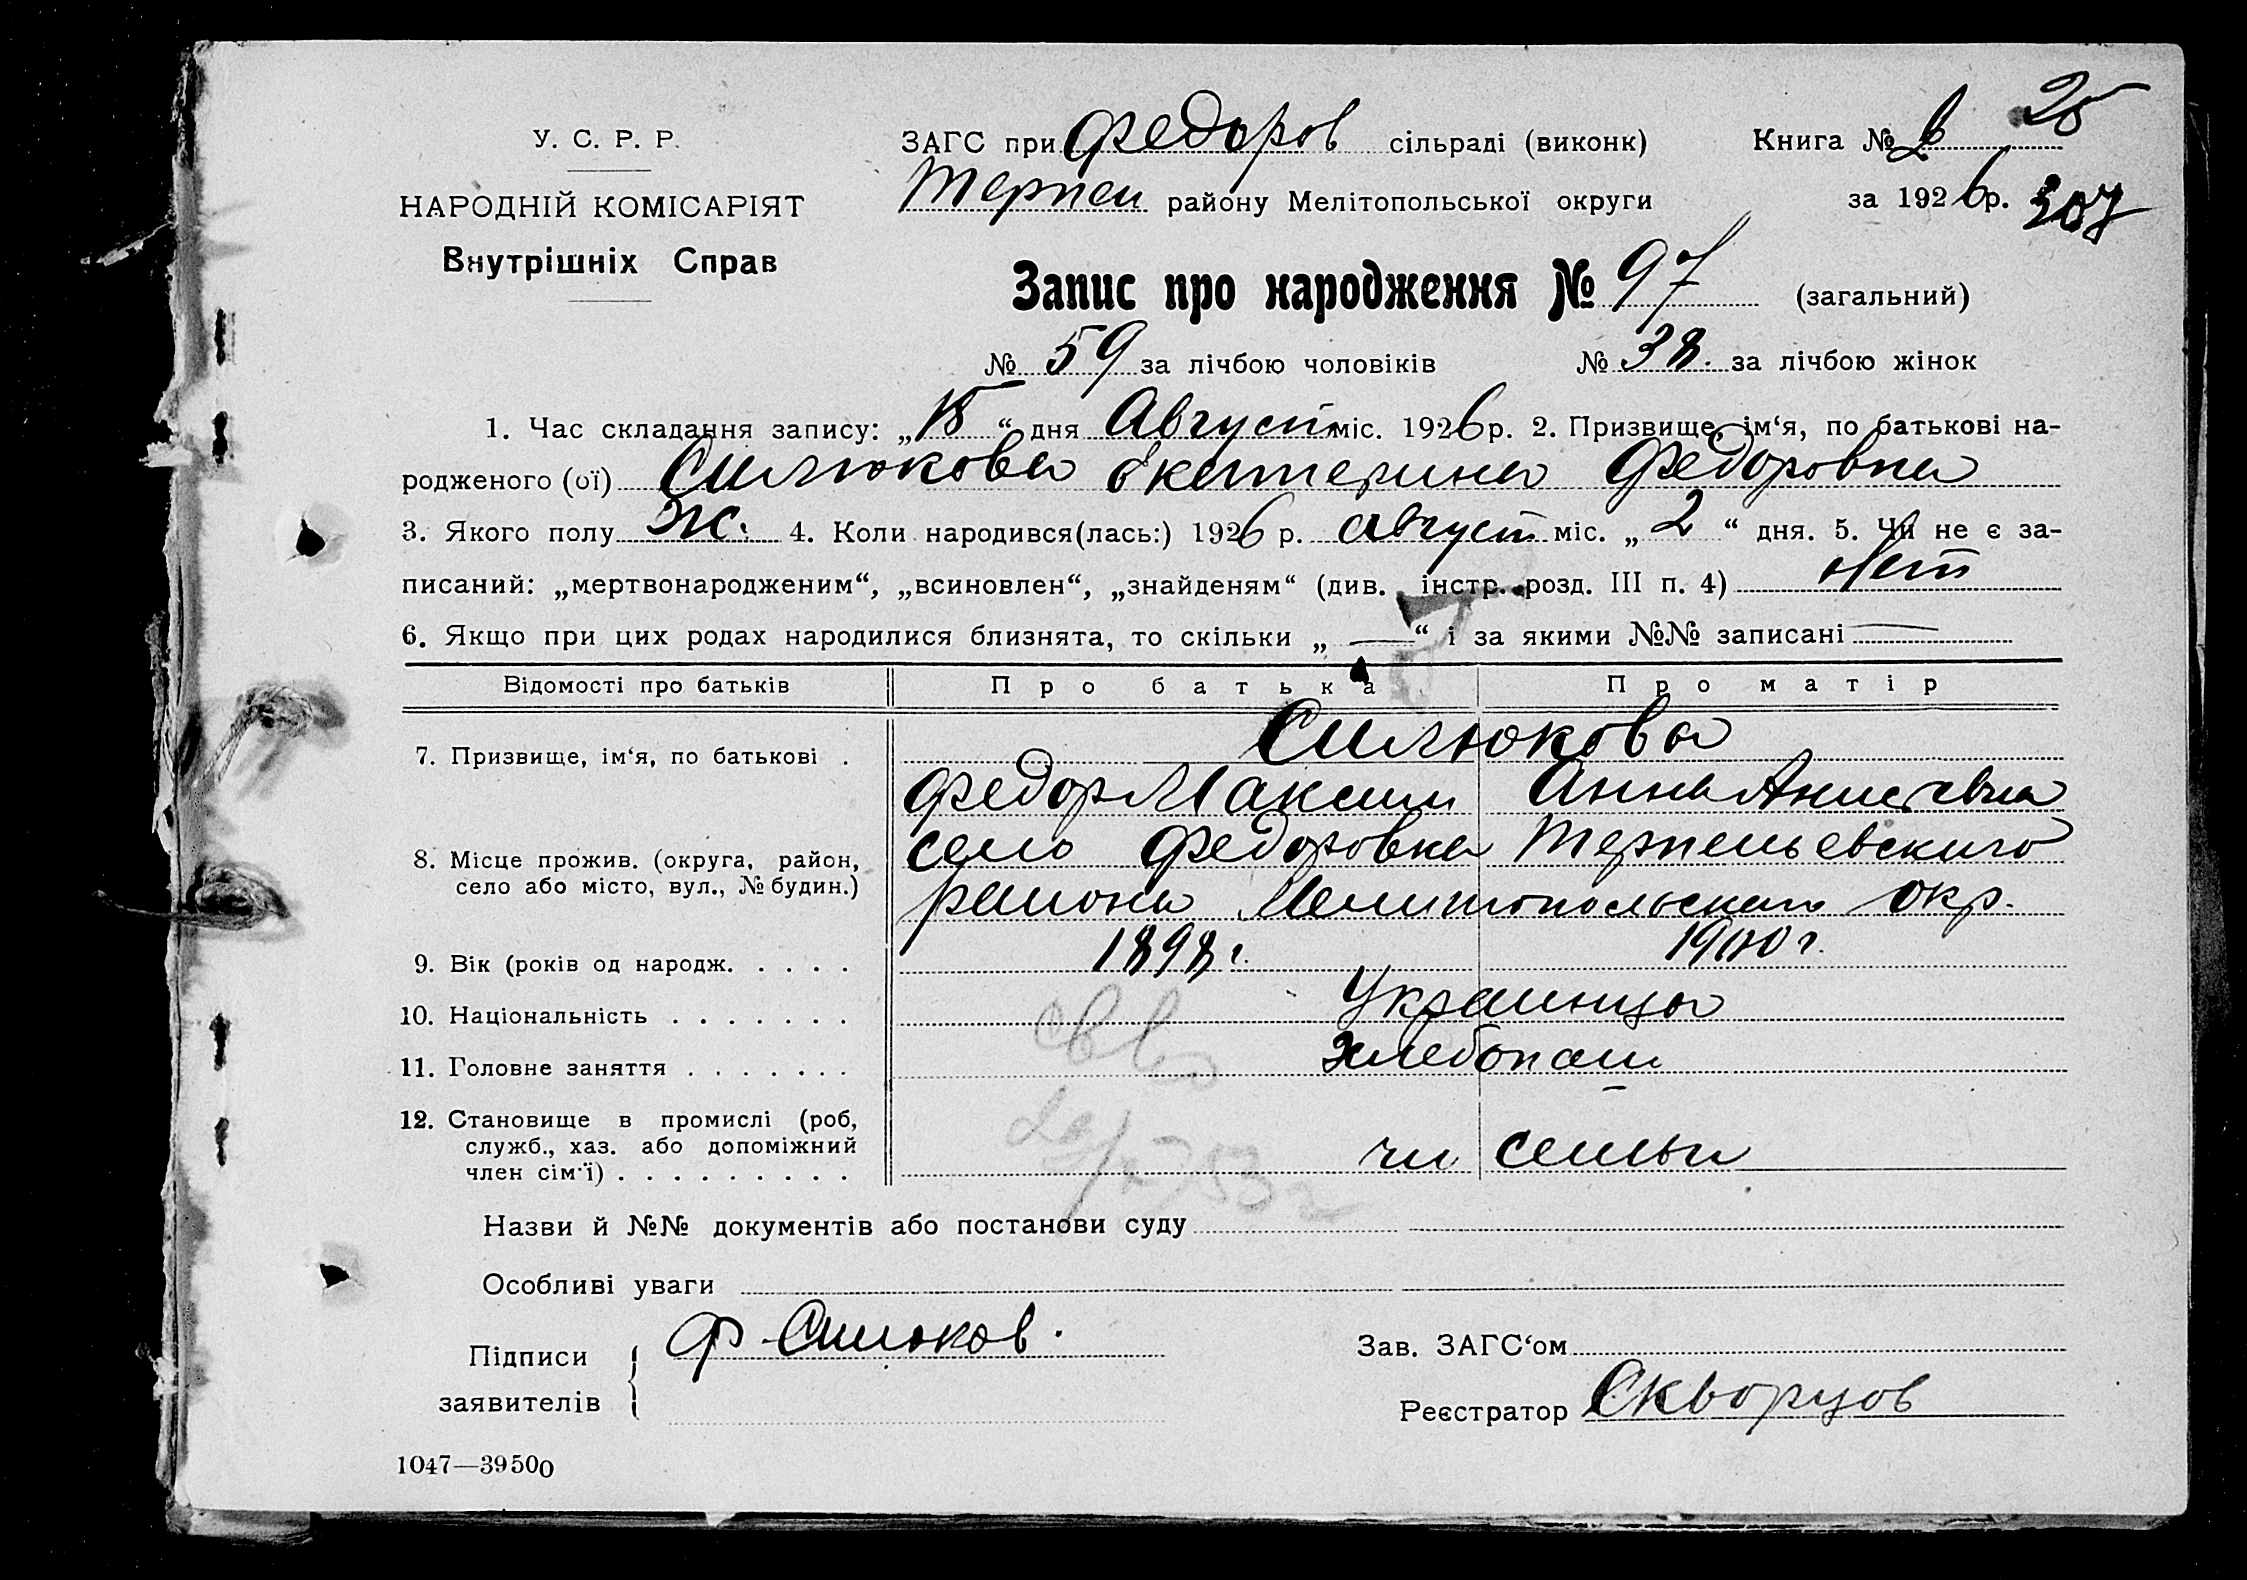 У. С. Р. Р.
НАРОДНІЙ КОМІСАРІЯТ
Внутрішніх Справ
ЗАГС при Федоров сільраді (виконк)
Терпен району Мелітопольської округи
Книга № 2 25
за 1926 р. 307
Запис про народження № 97 (загальний)
№ 59 за лічбою чоловіків № 38. за лічбою жінок
1. Час складання запису: „15“ дня Август міс. 1926 р. 2. Призвище, ім‘я, по батькові на-
родженого (ої) Силюкова Екатерина Федоровна
3. Якого полу Ж. 4. Коли народився(лась:) 1926 р. август міс. „2“ дня. 5. Чи не є за-
писаний: „мертвонародженим“, „всиновлен“, „знайденям“ (див. інстр. розд. III п. 4) Нет
6. Якщо при цих родах народилися близнята, то скільки „—“ і за якими №№ записані —
Відомості про батьків Про батька Про матір
Силюковы
7. Призвище, ім‘я, по батькові .
Федор Максим Анна
8. Місце прожив. (округа, район,
село або місто, вул., № будин.)
село Федоровка Терпеньевского
района Мелитопольского окр.
9. Вік (років од народж. . . . . 1898 г. 1900 г.
10. Національність . . . . . . . Украинцы
11. Головне заняття . . . . . . . хлебопаш
12. Становище в промислі (роб,
служб., хаз. або допоміжний
член сім‘ї) . . . . . . . . . чл семьи
Назви й №№ документів або постанови суду
Особливі уваги
Підписи
заявителів
Ф Силюков.
Зав. ЗАГС‘ом
Реєстратор Скворцов
1047—39500